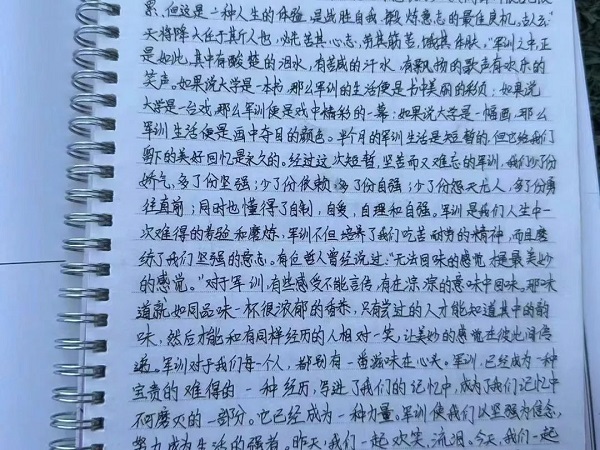 累,但这是一种人生的体验,是战胜自我,锻炼意志的最佳良机,古人云"
天将降大任于斯人也,必先苦其心志,劳其筋苦,饿其体肤。"军训之中正
是如此,其中有酸楚的泪水,有苦咸的汗水,有飘扬的歌声有欢乐的
笑声。如果说大学是一本书,那么军训的生活便是书中美丽的彩页;如果说
大学是一台戏,那么军训便是戏中精彩的一幕;如果说大学是一幅画,那么
军训生活便是画中夺目的颜色。半个月的军训生活是短暂的,但它给我们
留下的美好回忆是永久的。经过这次短暂,坚苦而又难忘的军训,我们少了份
娇气,多了份坚强;少了份依赖,多了份自强;少了份怨天尤人,多了份勇
往直前;同时也懂得了自制,自爱,自理和自强。军训是我们人生中一
次难得的考验和磨炼,军训不但培养了我们吃苦耐劳的精神,而且磨
练了我们坚强的意志。有位诗人曾经说过:"无法回味的感觉,才是最美妙
的感觉。"对于军训,有些感受不能言传,有在淙淙的意味中回味。那味
道就如同品味一杯很浓郁的香茶,只有尝过的人才能知道其中的韵
味,然后才能和有同样经历的人相对一笑,让美妙的感觉在彼此间传
递。军训对于我们每个人,都别有一番滋味在心头。军训,已经成为一种
宝贵的难得的一种经历,写进了我们的记忆中,成为了我们记忆中
不可磨灭的一部分。它已经成为一种力量。军训使我们以坚强为信念,
努力成为生活的强者。昨天,我们一起欢笑,流泪。今天,我们一起